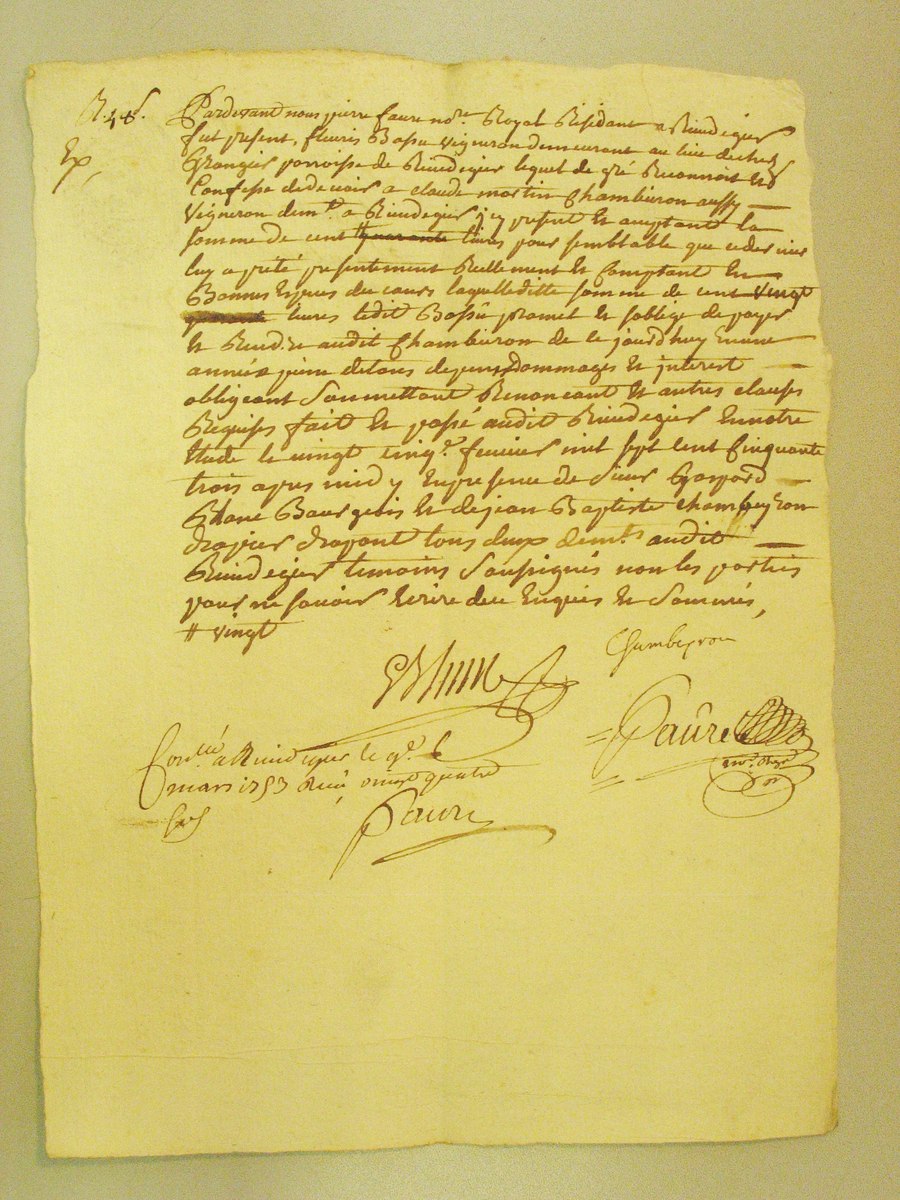 R. 48.
Ex
Pardevant nous pierre faure no.re Royal Residant a Rivedegier
fut present, fleuris Bassu vigneron demeurant au lieu deches
Granges parroisse de Rivedegier lequel de gré Reconnoit et
Confesse de devoir a claude martin Chambeiron aussy
vigneron demt. a Rivedegier icy present et aceptant la
somme de cent quarante livres pour semblable que ce dernier
luy a prété presentement Réellement et Comptant En
Bonnes Espces du cours laquelleditte somme de cent vingt
livres ledit Bassû promet et soblige de payer
et Rendre audit Chambeiron de ce jourdhuy en une
année peine de tous depens, dommages et interest
obligeant Soumettant Renoncant et autres clauses
Requises fait et passé audit Rivedegier En notre
Etude le vingt cinq. fevrier mil sept cent Cinquante
trois apres midy En presence de Sieur Gaspard
Bourgeois et de jean Baptiste chambeyron
drapier drapant tous deux demts. audit
Rivedegier temoins Soussignés non les parties
pour ne savoir Ecrire de ce Enquies et Sommés,
# vingt
Chambeyron
Faûre
no.re Royal
Con.llé a Rivedegier le
mars 1753 Reçu onze quatre
sols
Faure